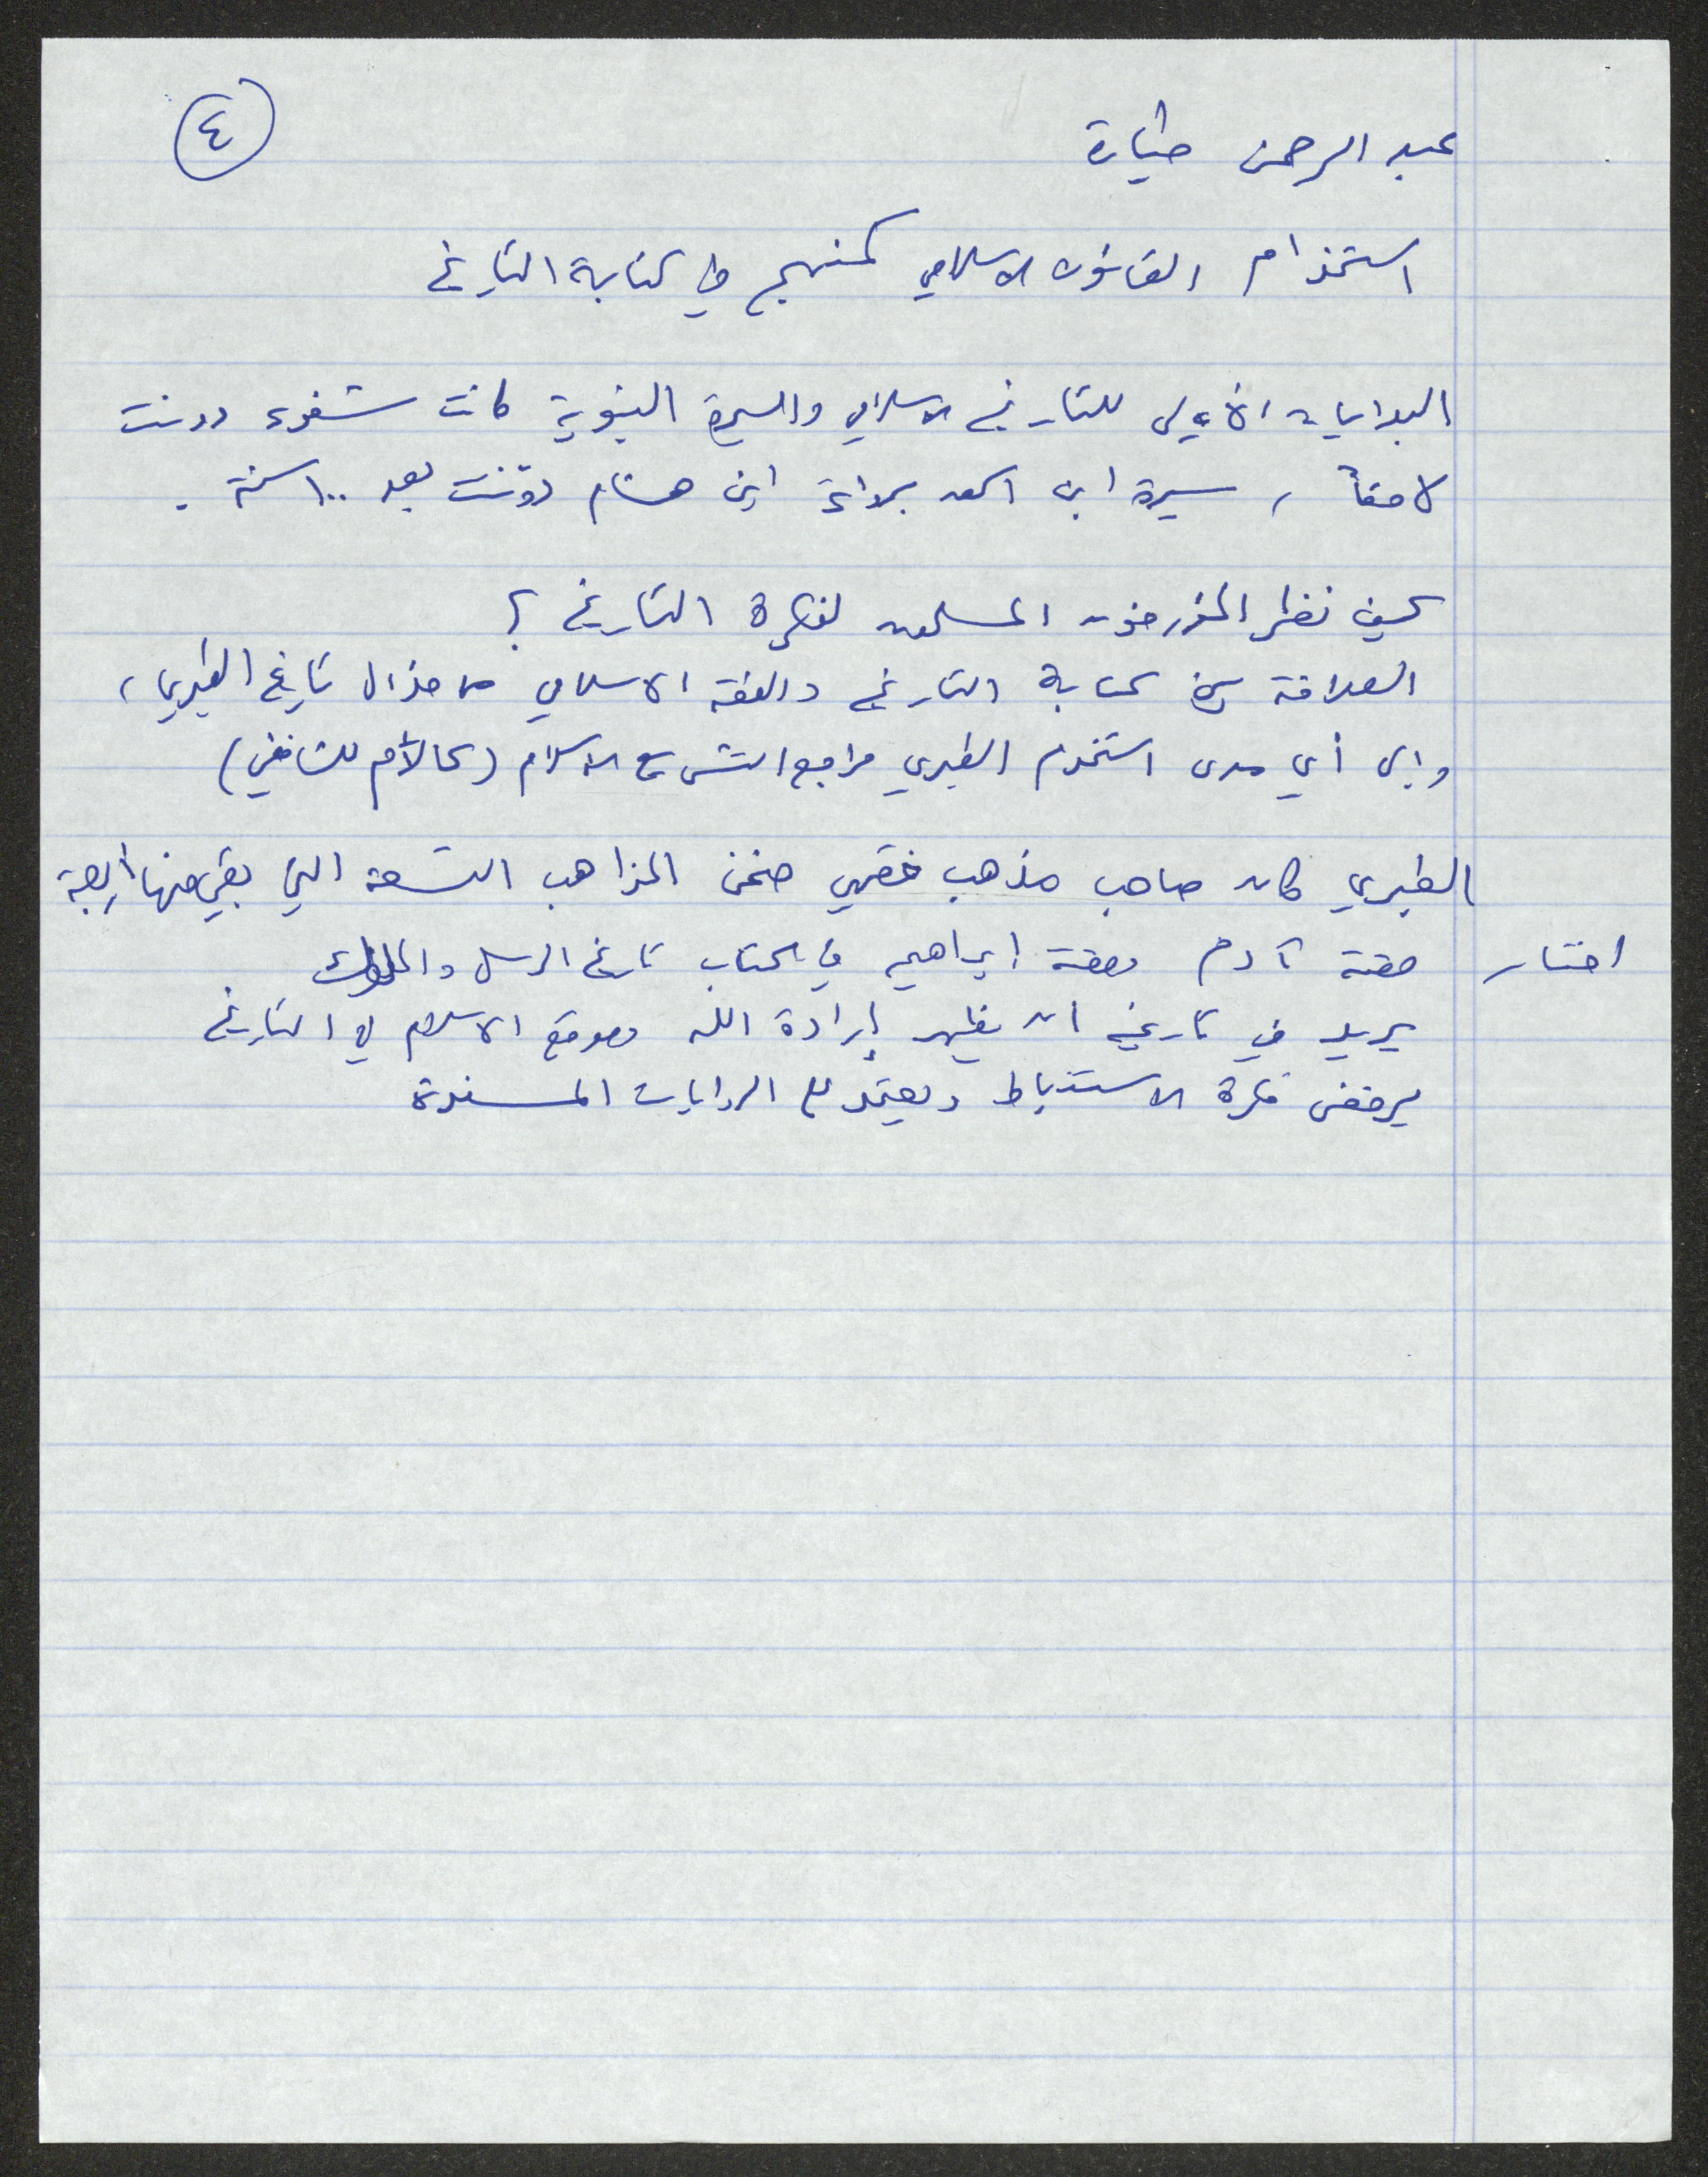 ٤
عبد الرحمن طيارة
استخدام القانون الاسلامي كمنهج في كتابة التاريخ
البدايات الأولى للتاريخ الاسلامي والسيرة النبوية كانت شفوية دونت
لاحقاً، سيرة ابن اسحق برواية ابن هشام دوّنت بعد ١٠٠ سنة.
كيف نظر المؤرخون المسلمون لفكرة التاريخ؟
العلاقة بين كتابة التاريخ والفقه الاسلامي من خلال تاريخ الطبري،
وإلى أي مدى استخدم الطبري مراجع التشريع الاسلام (كالأم للشافعي)
الطبري كان صاحب مذهب فقهي ضمن المذاهب التسعة التي بقي منها أربعة
اختار قصة آدم وقصة ابراهيم في كتاب تاريخ الرسل والملوك
يريد في تاريخه ان يظهر إرادة الله وموقع الاسلام في التاريخ
يرفض فكرة الاستنباط ويعتمد على الروايات المسندة